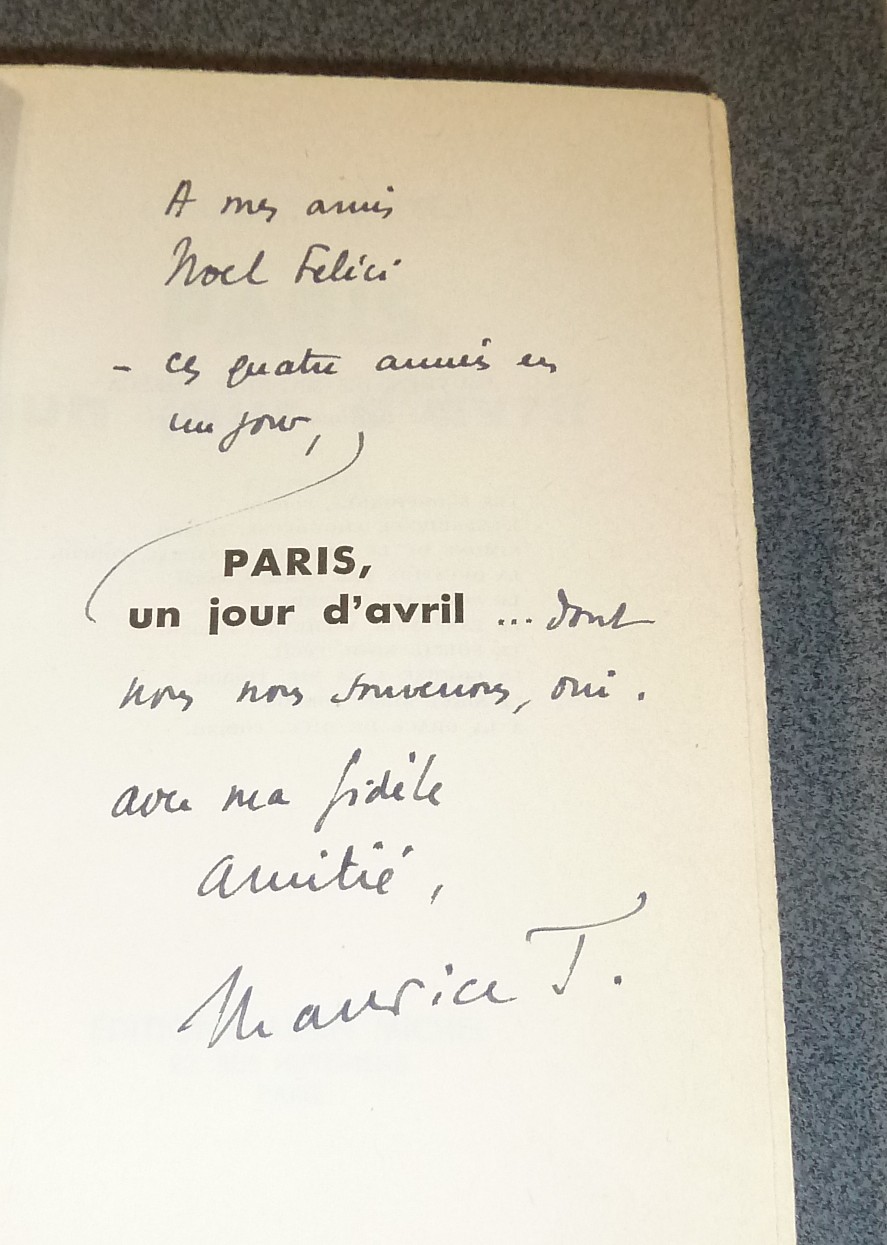 A mes amis
Noel Felici
- ces quatre années en
un jour,
PARIS,
un jour d'avril ... dont
nous nous souvenons, oui.
avec ma fidèle
amitié,
Maurice T.